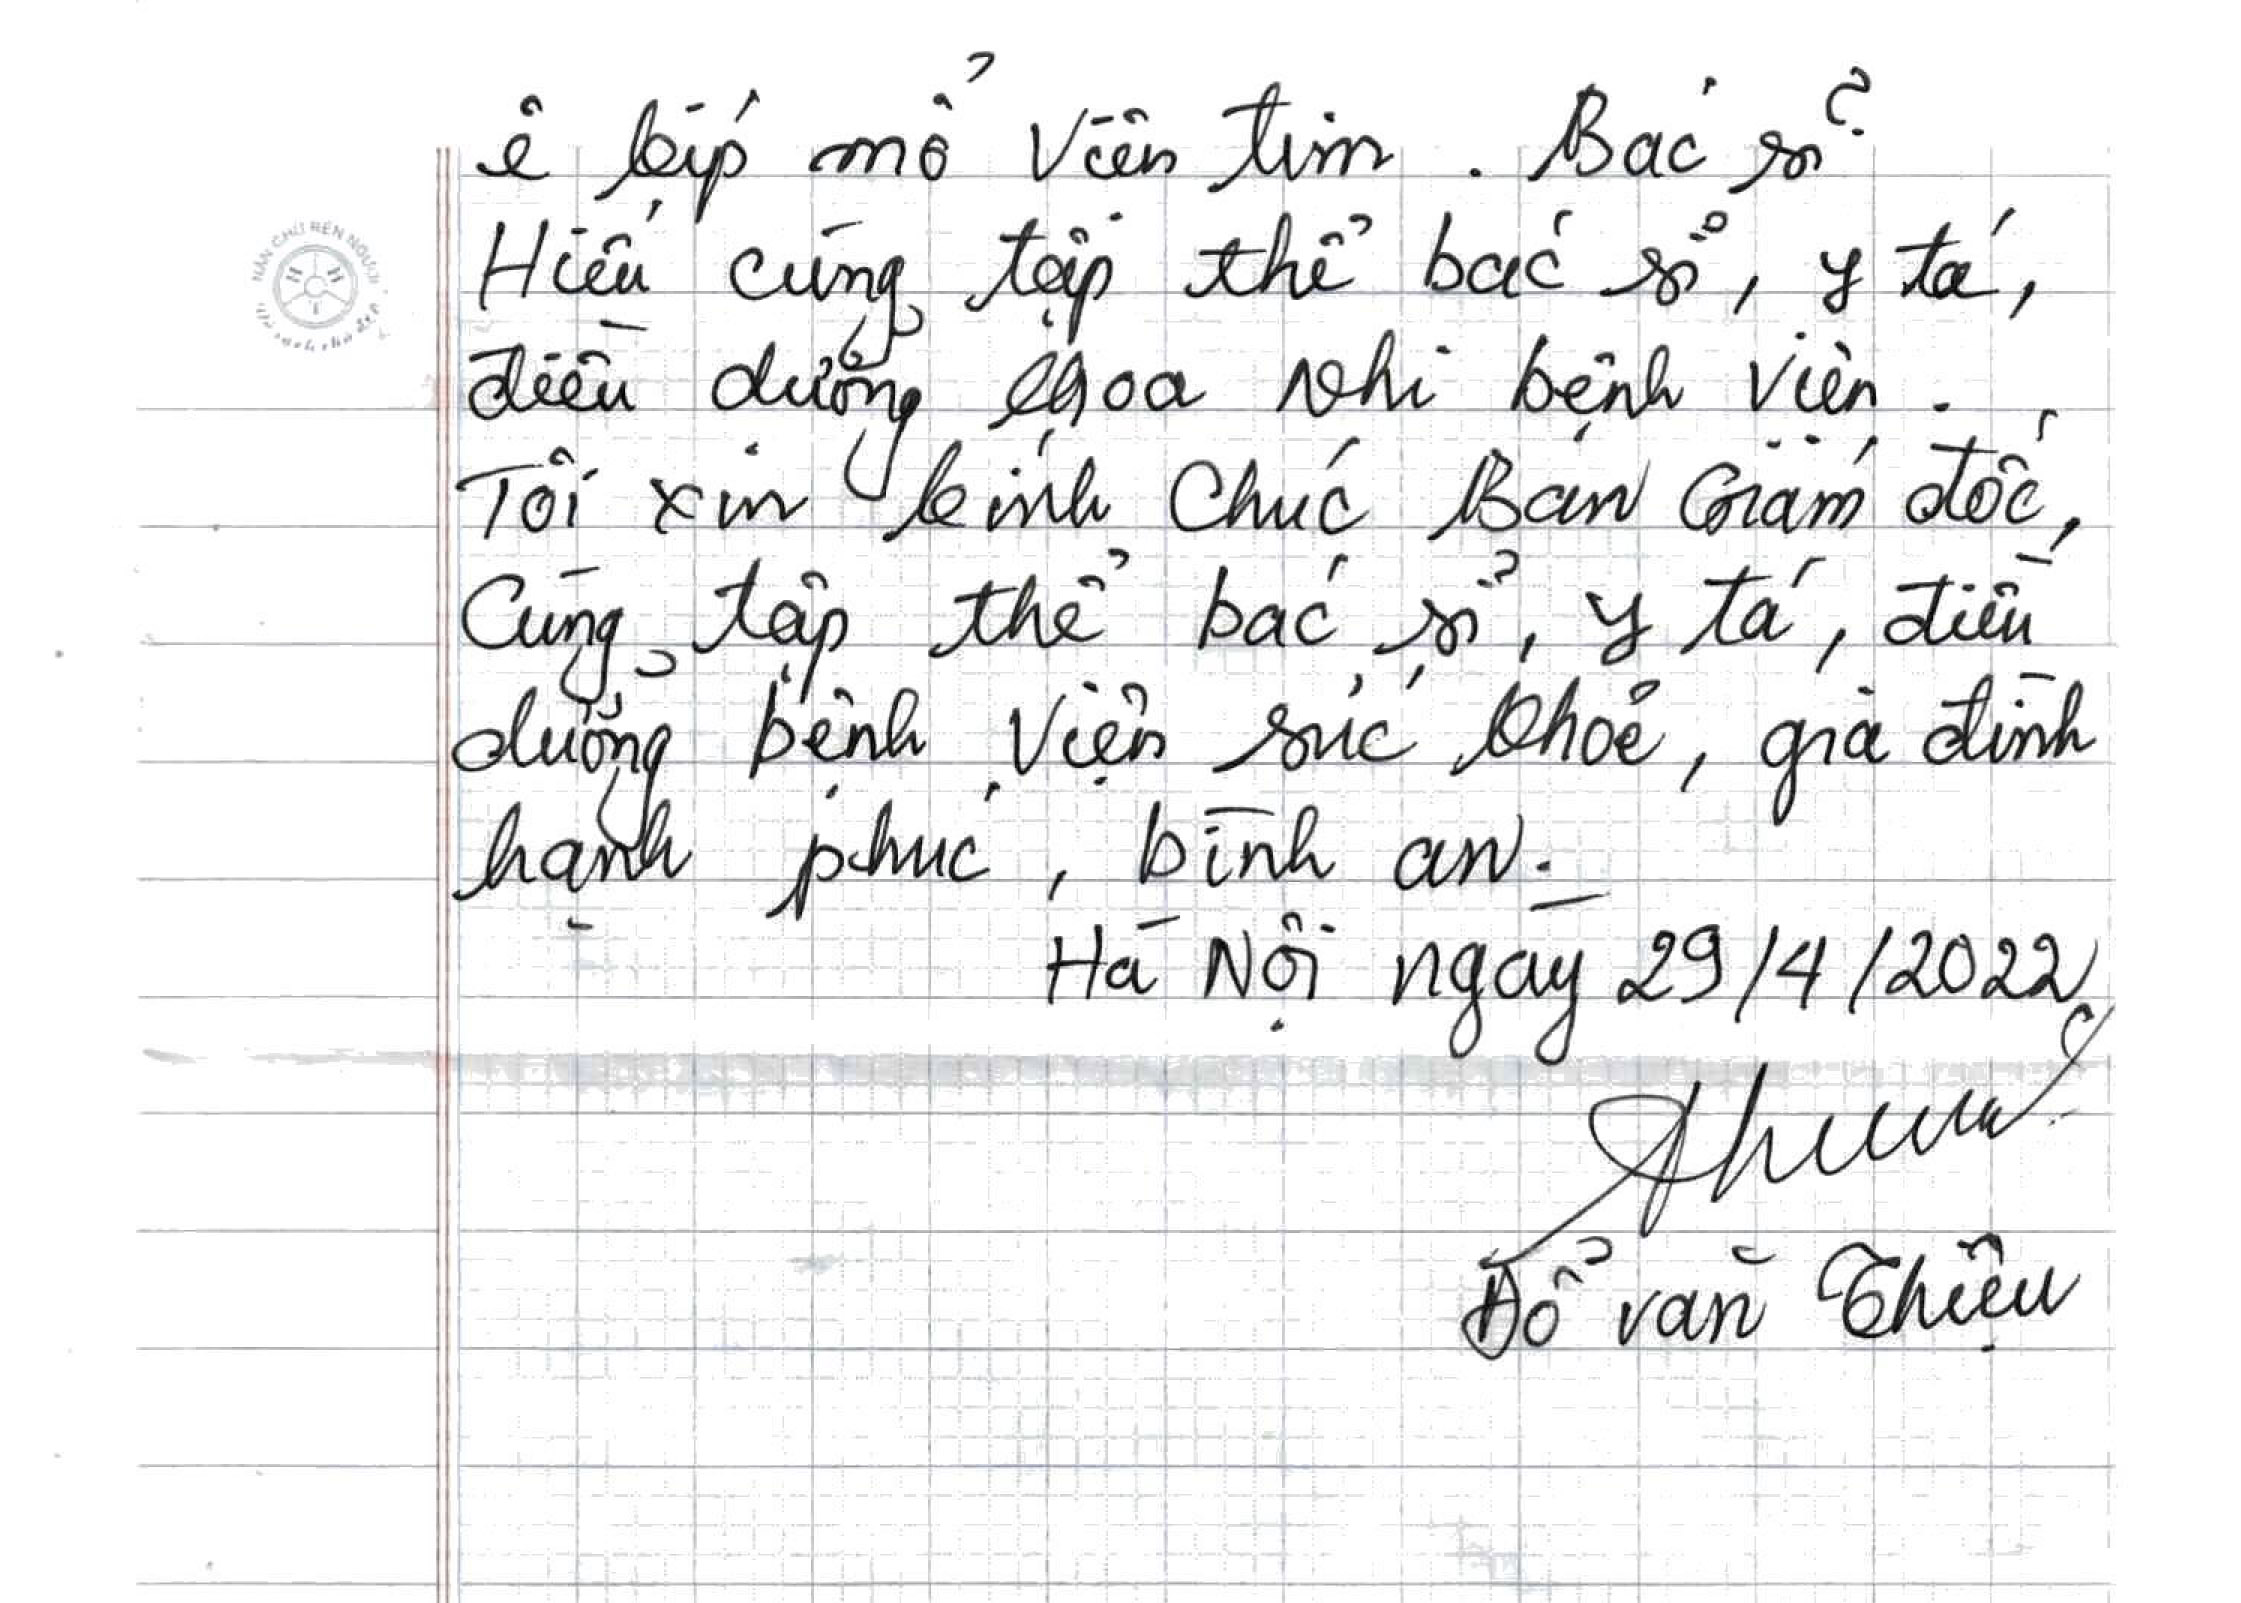 ê kíp mổ Viện tim. Bác sỉ
Hiếu cùng tập thể bác sỉ, y tá,
điều dưởng khoa nhi bệnh viện.
Tôi xin kính chúc Ban Giám đốc,
Cùng tập thể bác sỉ, y tá, điều
dưởng bệnh viện sức khoẻ, gia đình
hạnh phúc, bình an.
Hà Nội ngày 29/4/2022
Đổ văn Thiệu
NẮN CHỮ RÈN NGƯỜI